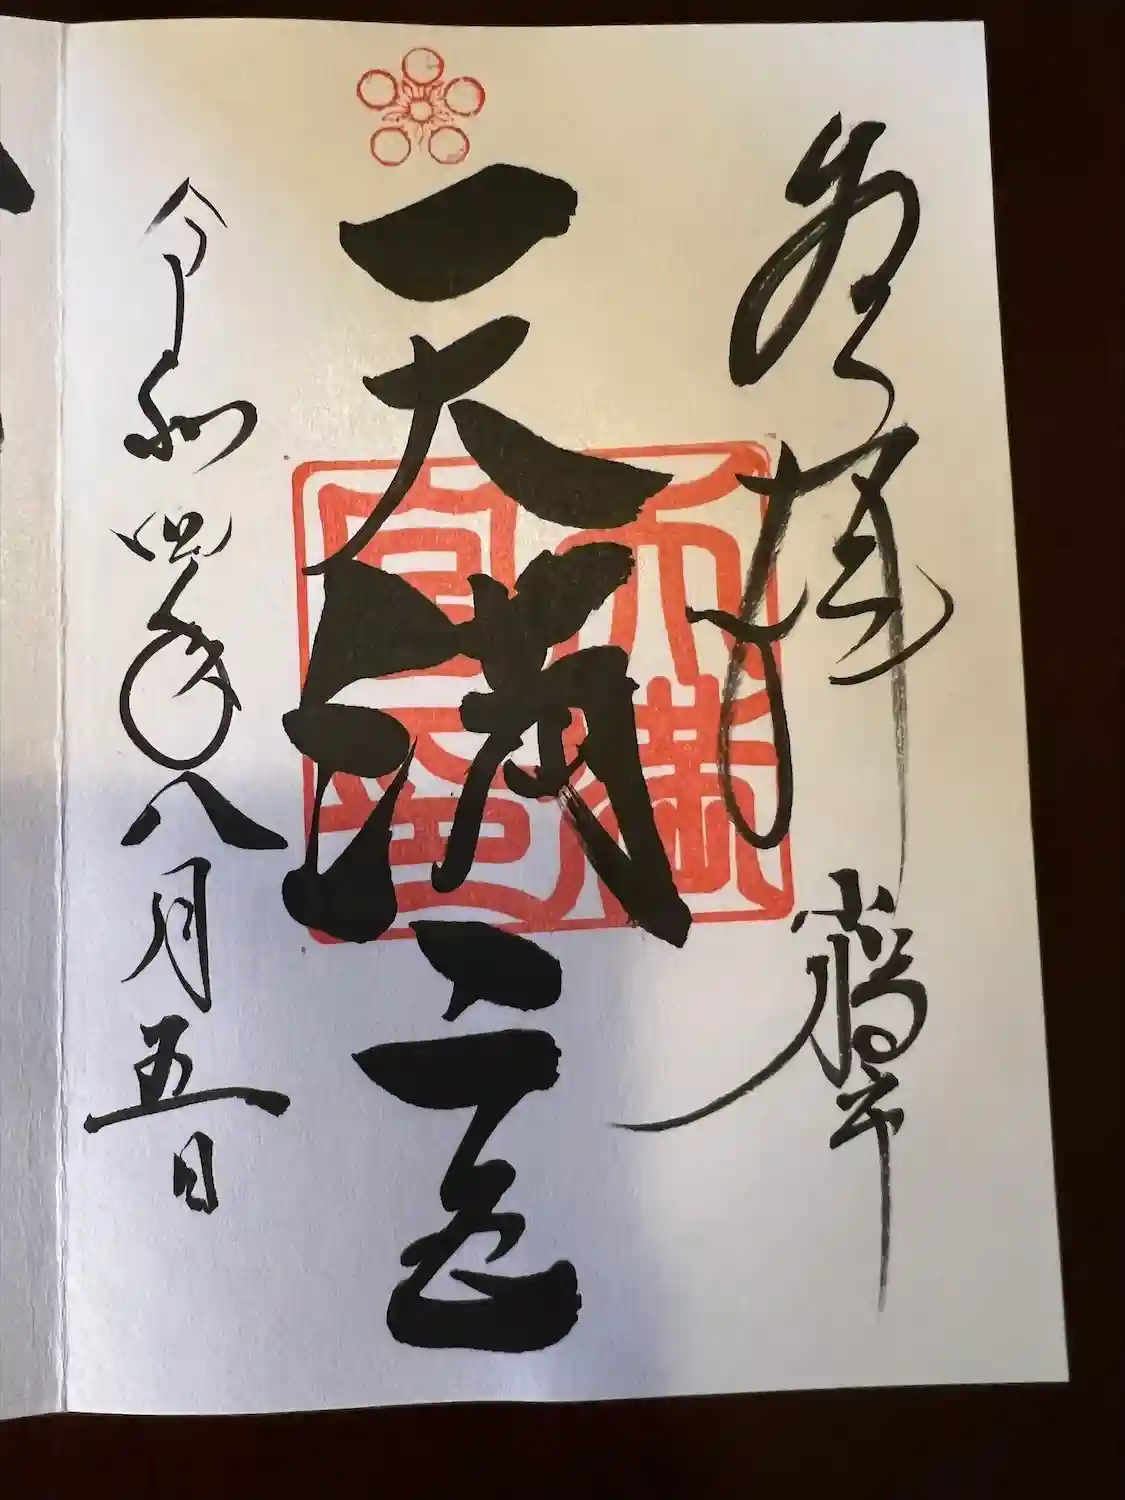 奉拝
天満宮
令和四年八月五日
天満宮